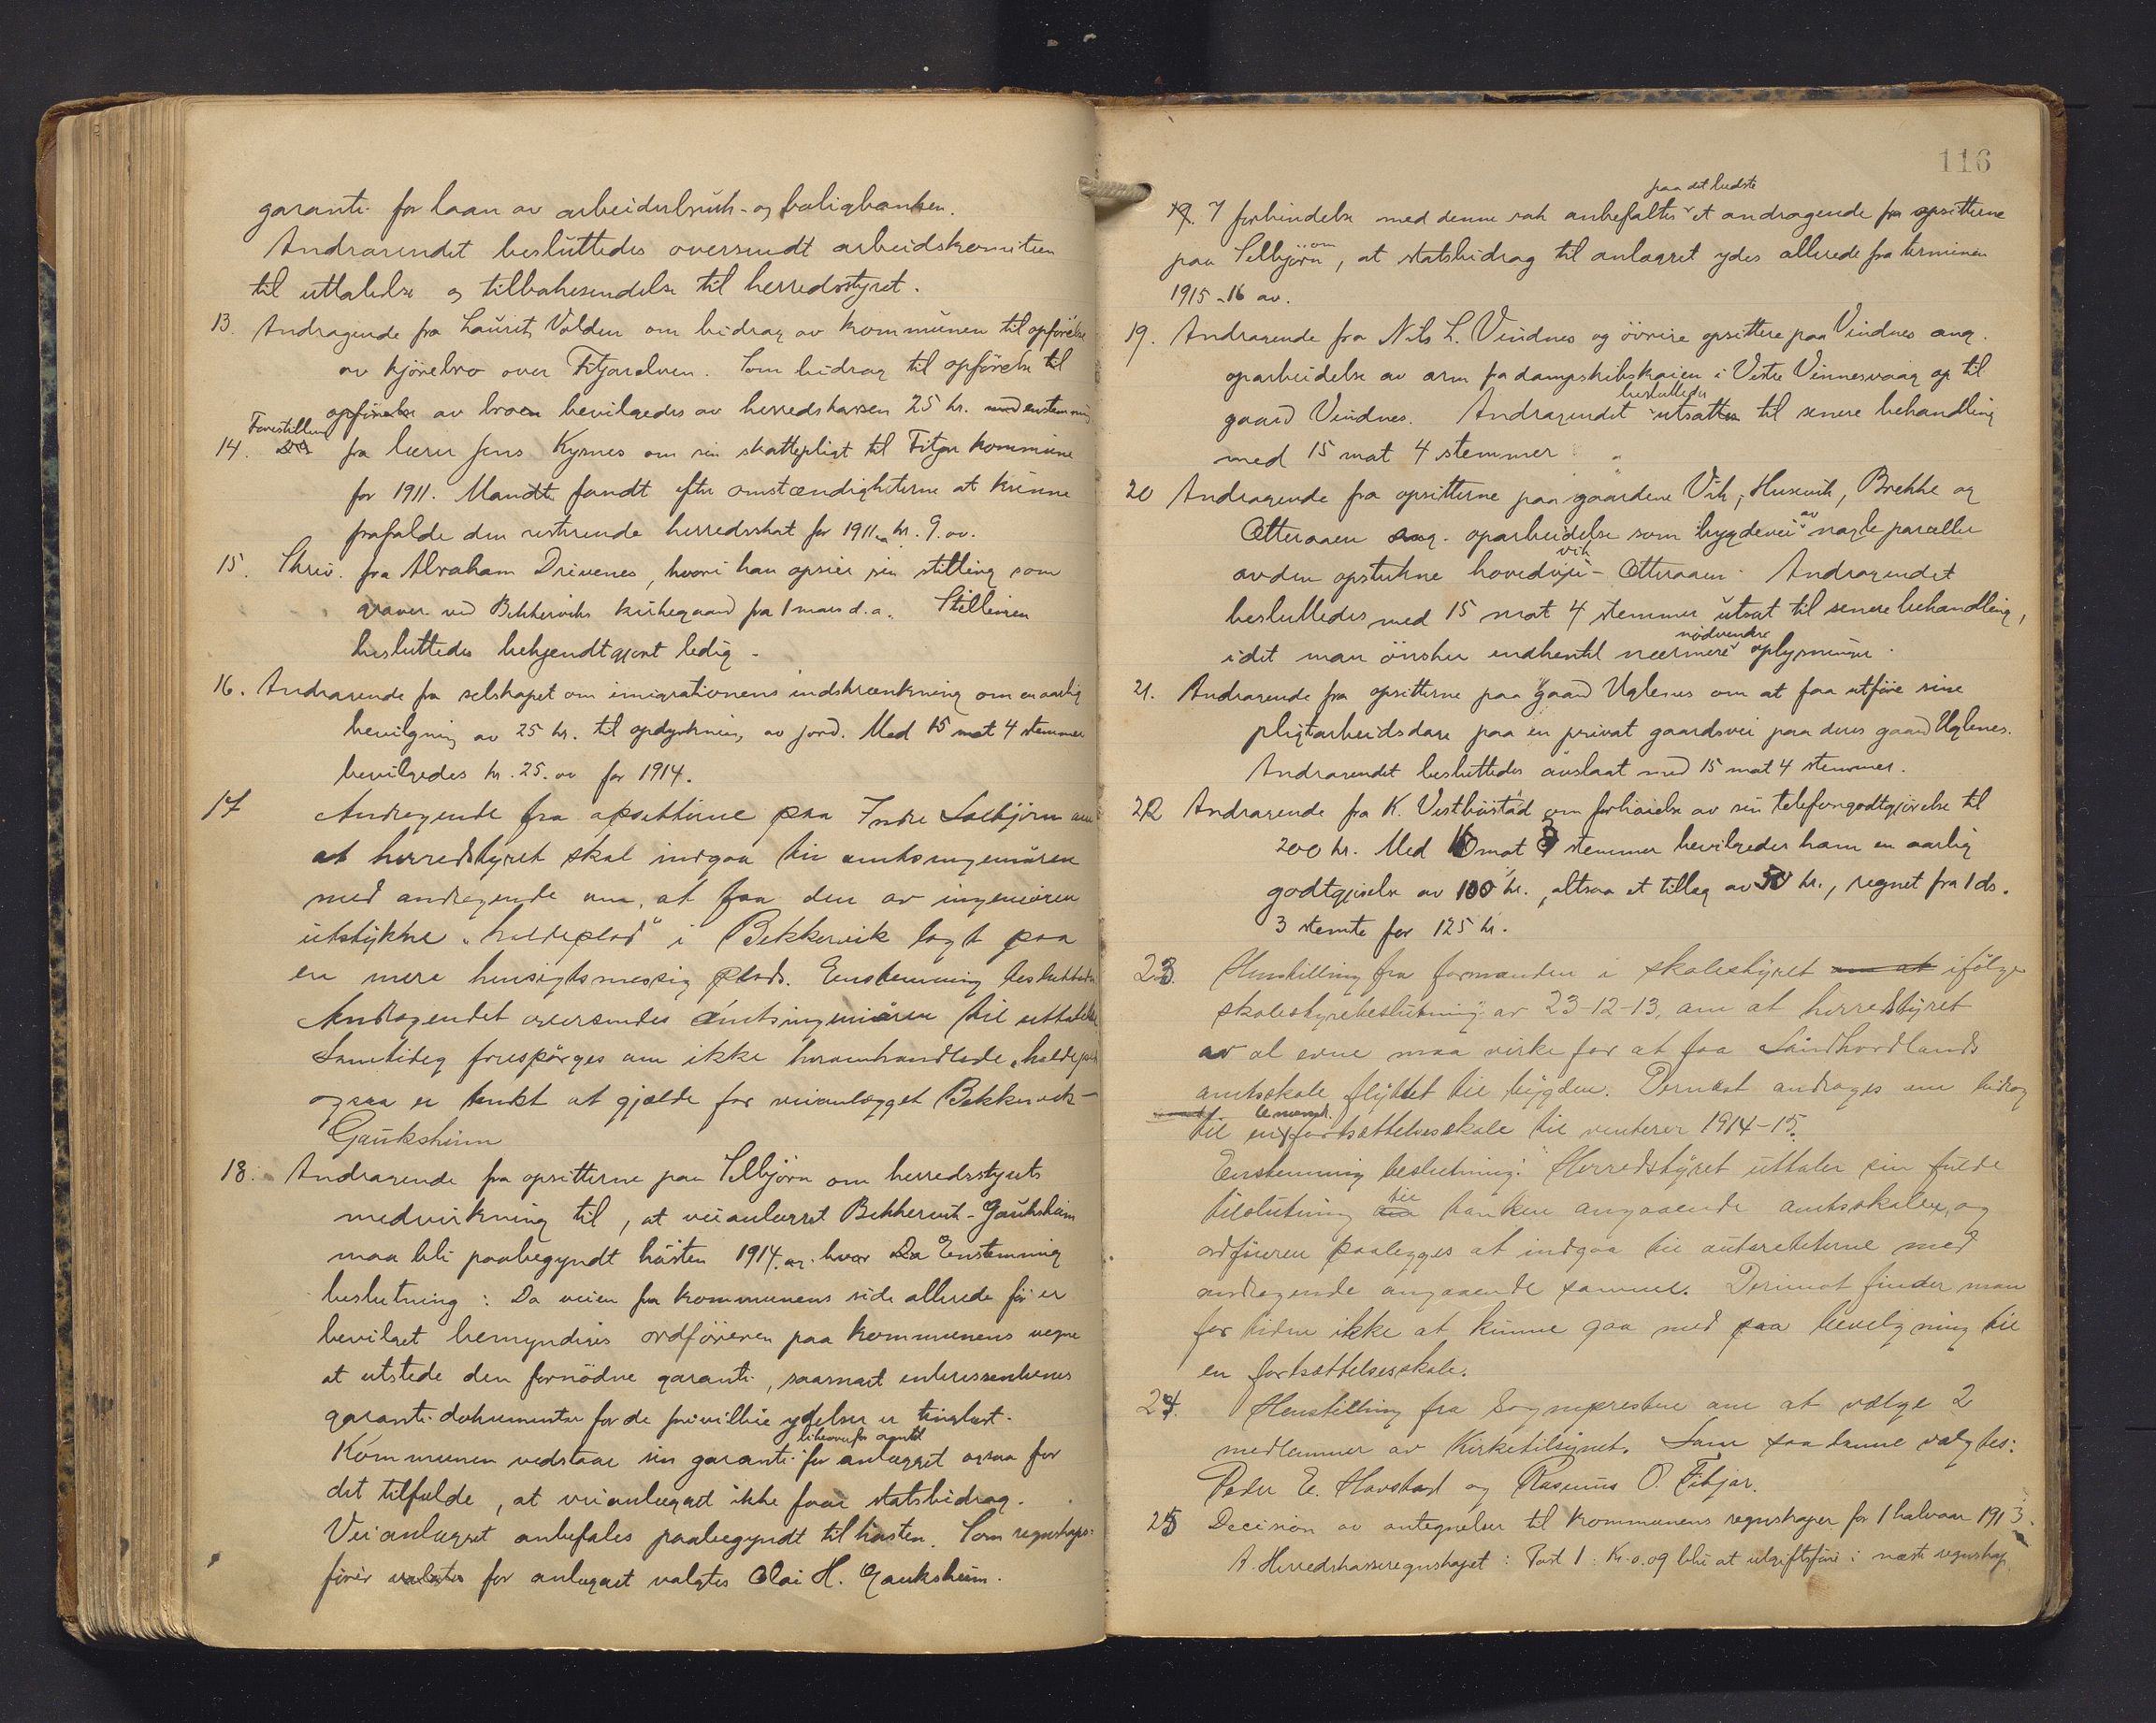 garanti for laan av arbeiderbruk- og boligbanken.
Andragendet besluttedes oversendt arbeidskomiteen
til uttalelse og tilbakesendelse til herredsstyret.
13. Andragende fra Laurits Volden om bidrag av kommunen til opförelse
av kjörebro over Fitjarelven. Som bidrag til opförelse til
opförelse av broen bevilgedes av herredskassen 25 kr. med enstemmig
Forestilling
14. fra lærer Jens Rysnes om sin skattepligt til Fitjar kommune
for 1911. Mandte fandt efter omstændigheterne at kunne
frafalde den resterende herredsskat for 1911 kr. 9. oo.
15. Skriv. fra Abraham Drivenes, hvori han opsier sin stilling som
graver ved Bekkerviks kirkegaard fra 1 mars d.a. Stillingen
besluttedes bekjendtgjort ledig.
16. Andragende fra selskapet om emigrationens indskrænkning om en aarlig
bevilgning av 25 kr. til opdyrkning av jord. Med 15 mot 4 stemmer
bevilgedes kr. 25. oo for 1914.
17 Andragende fra opsitterne paa Indre Selbjörn om
at herredstyret skal indgaa til amtsingeniören
med andragende om, at faa den av ingeniören
utstykne "holdeplads" i Bekkervik lagt paa
en mere hensigtsmessig plads. Enstemmig besluttedes
Andragendet oversendes Amtsingeniören til uttalelse
Samtideg forespörges om ikke heromhandlede "holdepl
ogsaa er tenkt at gjælde for veianlægget Bekkervik-
Gauksheim
18. Andragende fra opsitterne paa Selbjörn om herredsstyrets
medvirkning til, at veianlægget Bekkervik-Gauksheim
maa bli paabegyndt hösten 1914. hvor Da Enstemmig
beslutning: Da veien fra kommunens side allerede för er
bevilget bemyndiges ordföreren paa kommunens vegne
at utstede den fornödne garanti, saasnart interessenternes
garanti-dokumenter for de frivillige ydelser er tinglæst.
likeoverfor amtet
Kommunen vedstaar sin garanti for anlægget ogsaa for
det tilfælde, at veianlægget ikke faar statsbidrag.
Veianlægget anbefales paabegyndt til hösten. Som regnskaps-
förer valgtes for anlægget valgtes Olai H. Gauksheim.
116
paa det bedste
19. I forbindelse med denne sak anbefaltes et andragende fra opsitterne
om
paa Selbjörn, at statsbidrag til anlægget ydes allerede fra terminen
1915-16 av.
19. Andragende fra Nils L. Vindnes og övrige opsittere paa Vindnes ang.
oparbeidelse av arm fra dampskibskaien i Vestre Vinnesvaag op til
besluttedes
gaard Vindnes. Andragendet utsattes til senere behandling
med 15 mot 4 stemmer
20 Andragende fra opsitterne paa gaardene Vik, Husevik, Brekke og
av
Otteraaen ang. oparbeidelse som bygdevei nogle paraller
vik
av den opstukne hovedvei - Otteraaen. Andragendet
besluttedes med 15 mot 4 stemmer utsat til senere behandling,
nödvendre
idet man önsker indhentet nærmere oplysninger.
21. Andragende fra opsitterne paa gaard Uglenes om at faa utföre sine
pligtarbeidsdage paa en privat gaardsvei paa deres gaard Uglenes.
Andragendet besluttedes avslaat med 15 mot 4 stemmer.
22 Andragende fra K. Vestböstad om forhöielse av sin telefongodtgjörelse til
200 kr. Med 16 mot 3 stemmer bevilgedes ham en aarlig
godtgjörelse av 100 kr., altsaa et tillæg av 50 kr., regnet fra 1 ds.
3 stemte for 125 kr.
23. Henstilling fra formanden i skolestyret om at ifölge
skolestyrebeslutning av 23-12-13, om at herredstyret
av al evne maa virke for at faa Söndhordlands
amtsskole flyttet til bygden. Dernæst andrages om bidrag
til en fortsættelsesskole til vinteren 1914-15.
Enstemmig beslutning: "Herredstyret uttaler sin fulde
til
tilslutning tanken angaaende amtsskolen, og
ordföreren paalegges at indgaa til autoriteterne med
andragende angaaende samme. Derimot finder man
for tiden ikke at kunne gaa med paa bevilgning til
en fortsættelsesskole.
24. Henstilling fra Sognepresten om at vælge 2
medlemmer av Kirketilsynet. Som saadanne valgtes:
Peder E. Havstad og Rasmus O. Fitjar.
25 Decision av antegnelser til kommunens regnskaper for 1 halvaar 1913.
A. Herredskasseregnskapet: Post 1: Kr. 0.09 blir at utgiftsföre i næste regnskap.